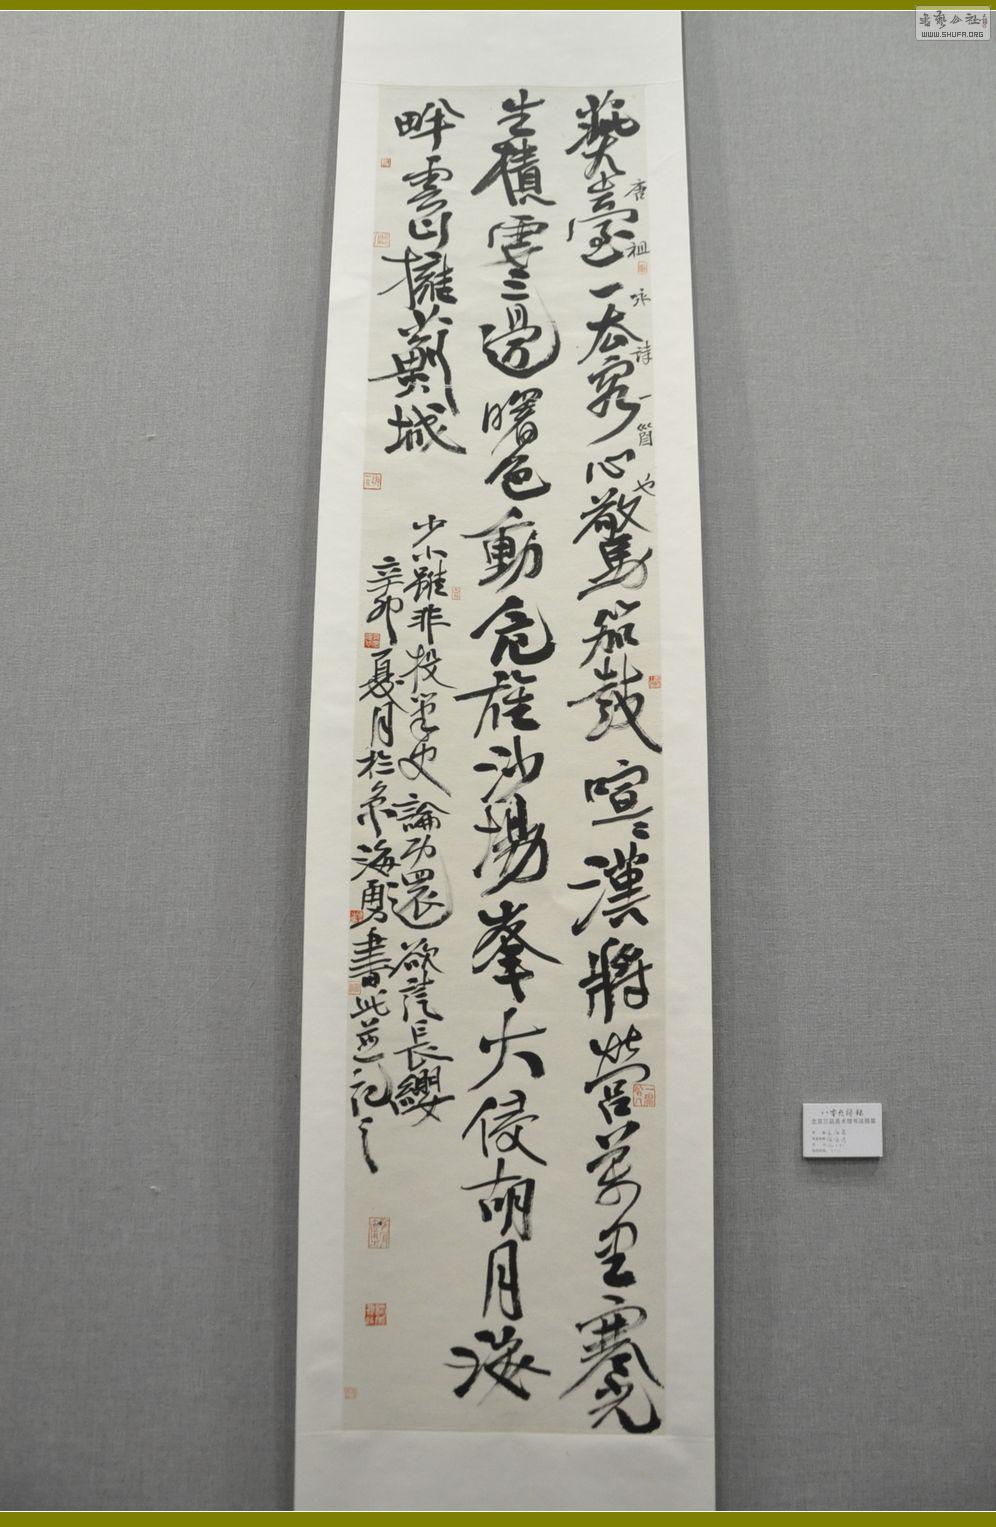 燕臺一去客心驚笳鼓喧〻漢將營萬里寒光
唐祖咏詩一首也
生積雪三邊曙色動危旌沙場峯火侵胡月海
畔雲山擁薊城
少小雖非投筆吏論功還欲請長纓
辛卯夏月於京海勇書此並記之
書藝公社
WWW.SHUFA.ORG